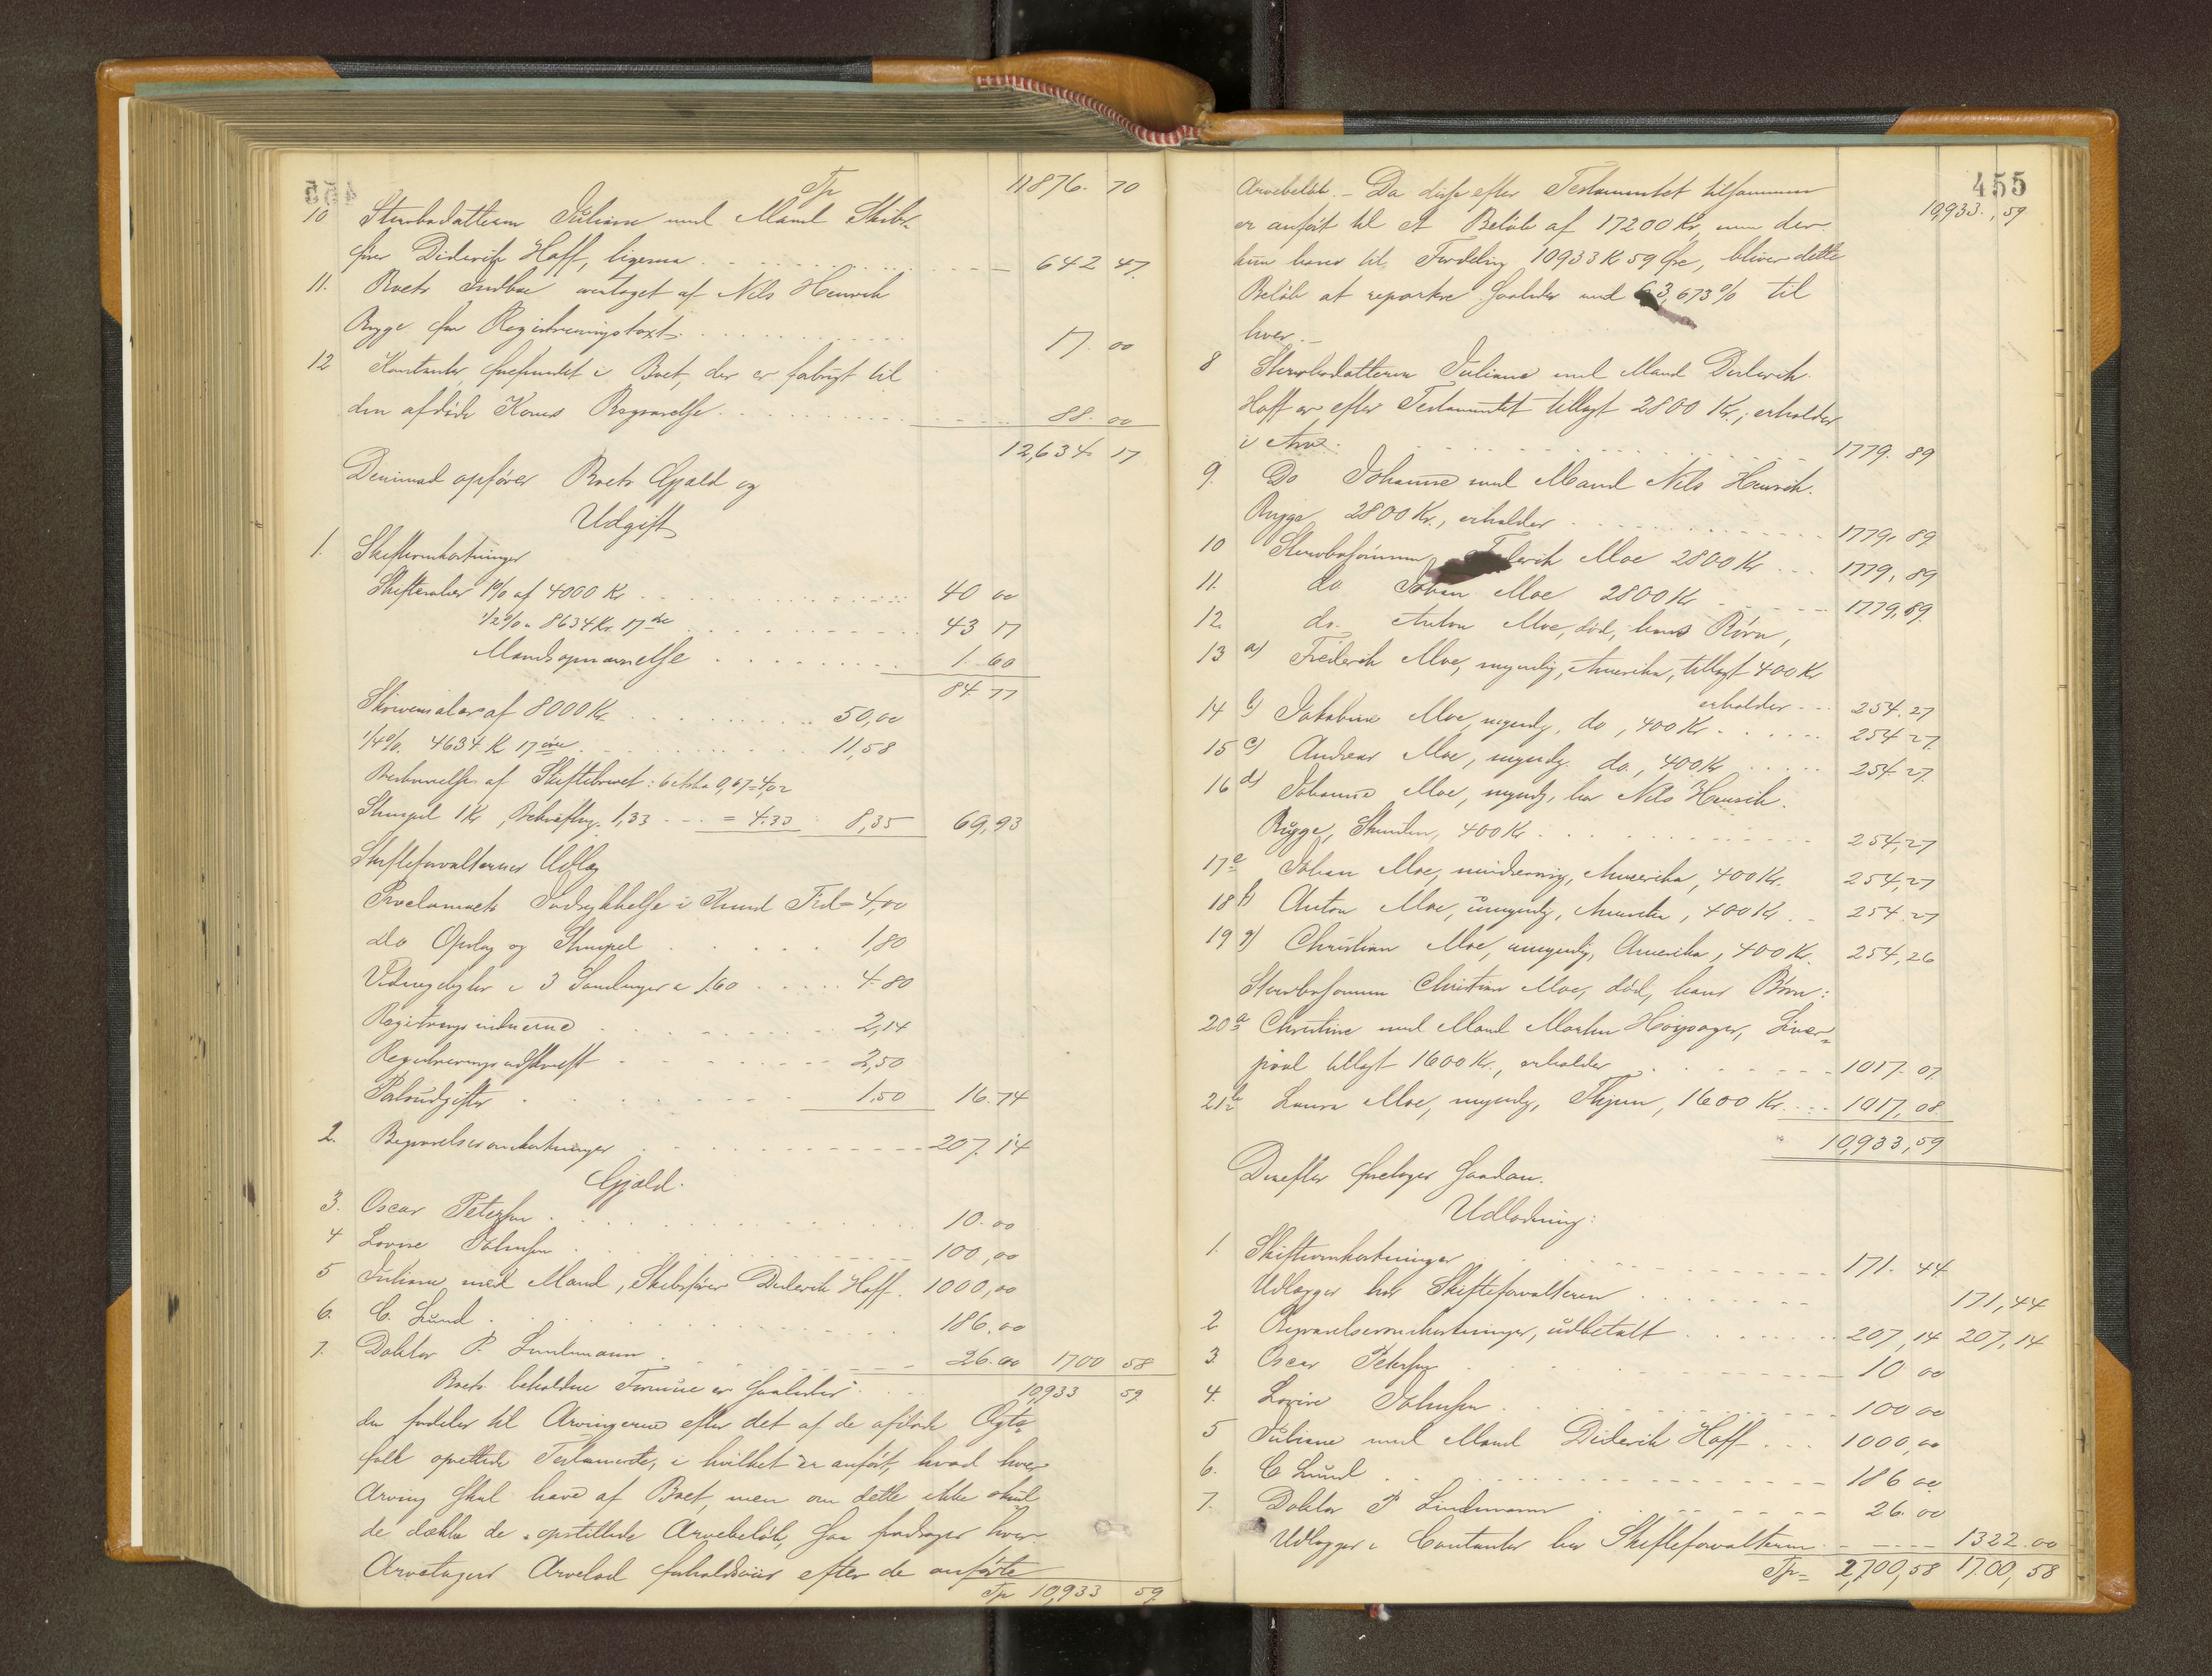 Tp 11876. 70
10 Stervbodatteren Juliane med Mand Skibs-
fører Diderik Hoff, ligesaa 642 47.
11. Boets Indboe overtaget af Nils Henrik
Rygge for Registreringstaxt 17. 00
12 Kontanter, forefundet i Boet, der er forbrugt til
den afdøde Kones Begravelse 88. 00
12,634 17
Derimod opfører Boets Gjæld og
Udgift
1. Skifteomkostninger
Skiftesalær 1% af 4000 Kr 40 00
1/2% " 8634 Kr. 17 øre 43 17
Mandsopnævnelse 1. 60
84. 77
Skriversalær af 8000 Kr. 50,00
1/4%. 4634 K 17 øre 11,58
Beskrivelse af Skiftebrevet: 6 Ark a 0,67 = 4,02
Stempel 1 Kr, Bekræftng. 1,33 = 4.33 8,35 69,93
Skifteforvalterens Udlæg
Proclamaets Indrykkelse i Kund Tid = 4,00
do Opslag og Stempel 1,80
Vidnegebyhr i 3 Samlinger a 1.60 4.80
Registreringsvidnerne 2,14
Registreringsudskrift 2,50
Portoudgifter 1.50 16.74
2. Begravelsesomkostninger 207. 14
Gjæld.
3. Oscar Petersen 10. 00
4 Lovise Johnsen 100,00
5 Juliane med Mand, Skibsfører Diderik Hoff. 1000,00
6. C. Lund 186.00
7. Doktor P. Lindemann 26.00 1700 58
Boets beholdne Formue er saaledes 10,933 59
der fordeles til Arvingerne efter det af de afdøde Ægte-
folk oprettede Testamente, i hvilket er anført, hvad hver
Arving skal have af Boet, men om dette ikke skul
de dække de opstillede Arvebeløb, saa fradrages hver
Arvetagers Arvelod forholdsviis efter de anførte
Tp 10,933 59
455
10,933., 59
Arvebeløb. – Da disse efter Testamentet tilsammen
er anført til et Beløb af 17200 Kr, men der
kun haves til Fordeling 10933 K 59 Øre, bliver dette
Beløb at repartere saaledes med 63,673% til
hver. –
8 Stervbodatteren Juliane med Mand Diderik
Hoff er efter Testamentet tillagt 2800 Kr.; erholder
i Arv. 1779. 89
9. Do Johanne med Mand Nils Henrik
Rygge 2800 Kr., erholder 1779. 89
10 Stervbosønnen Frederik Moe 2800 Kr 1779, 89
11. do Johan Moe 2800 Kr 1779,89.
12. do. Anton Moe, død, hans Børn,
13 a) Frederik Moe, myndig, Amerika, tillagt 400 Kr
erholder 254.27
14 b) Jakobine Moe, myndg, do, 400 Kr 254 27.
15 c) Andreas Moe, myndg do, 400 Kr 254. 27.
16 d) Johanne Moe, myndg, hos Nils Henrik
Rygge, 400 Kr 254,27
17 e Johan Moe, mindreaarig, Amerika, 400 Kr. 254,27
18 f) Anton Moe, umyndg, Amerika, 400 Kr 254.27
19 g) Christian Moe, umyndig, Amerika, 400 Kr. 254,26
Stervbosønnen Christian Moe, død, hans Børn:
20 a Christine med Mand Martin Høyvager, Liver-
pool tillagt 1600 Kr., erholder 1017. 07.
21 b Laura Moe, myndg, Thjem, 1600 Kr. 1017, 08
10,933,59
Derefter foretages saadan
Udlodning:
1. Skifteomkostninger 171. 44
Udlægges hos Skifteforvalteren 171,44
2 Begravelsesomkostninger, udbetalt 207,14 207,14
3. Oscar Petersen 10 00
4. Lovise Johnsen 100 00
5 Juliane med Mand Diderik Hoff 1000,00
6. C Lund 186 00
7. Doktor P Lindemann 26. 00
Udlægges i Contanter hos Skifteforvalteren 1322.00
Tp = 2,700,58 1700,58